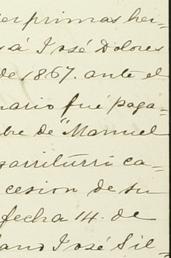 er primas her=
sá José Dolores
de 1867. ante el
nario fué paga=
bre de "Manuel
garriturri ca=
cesion de su
fecha 14. de
ano José Sil=